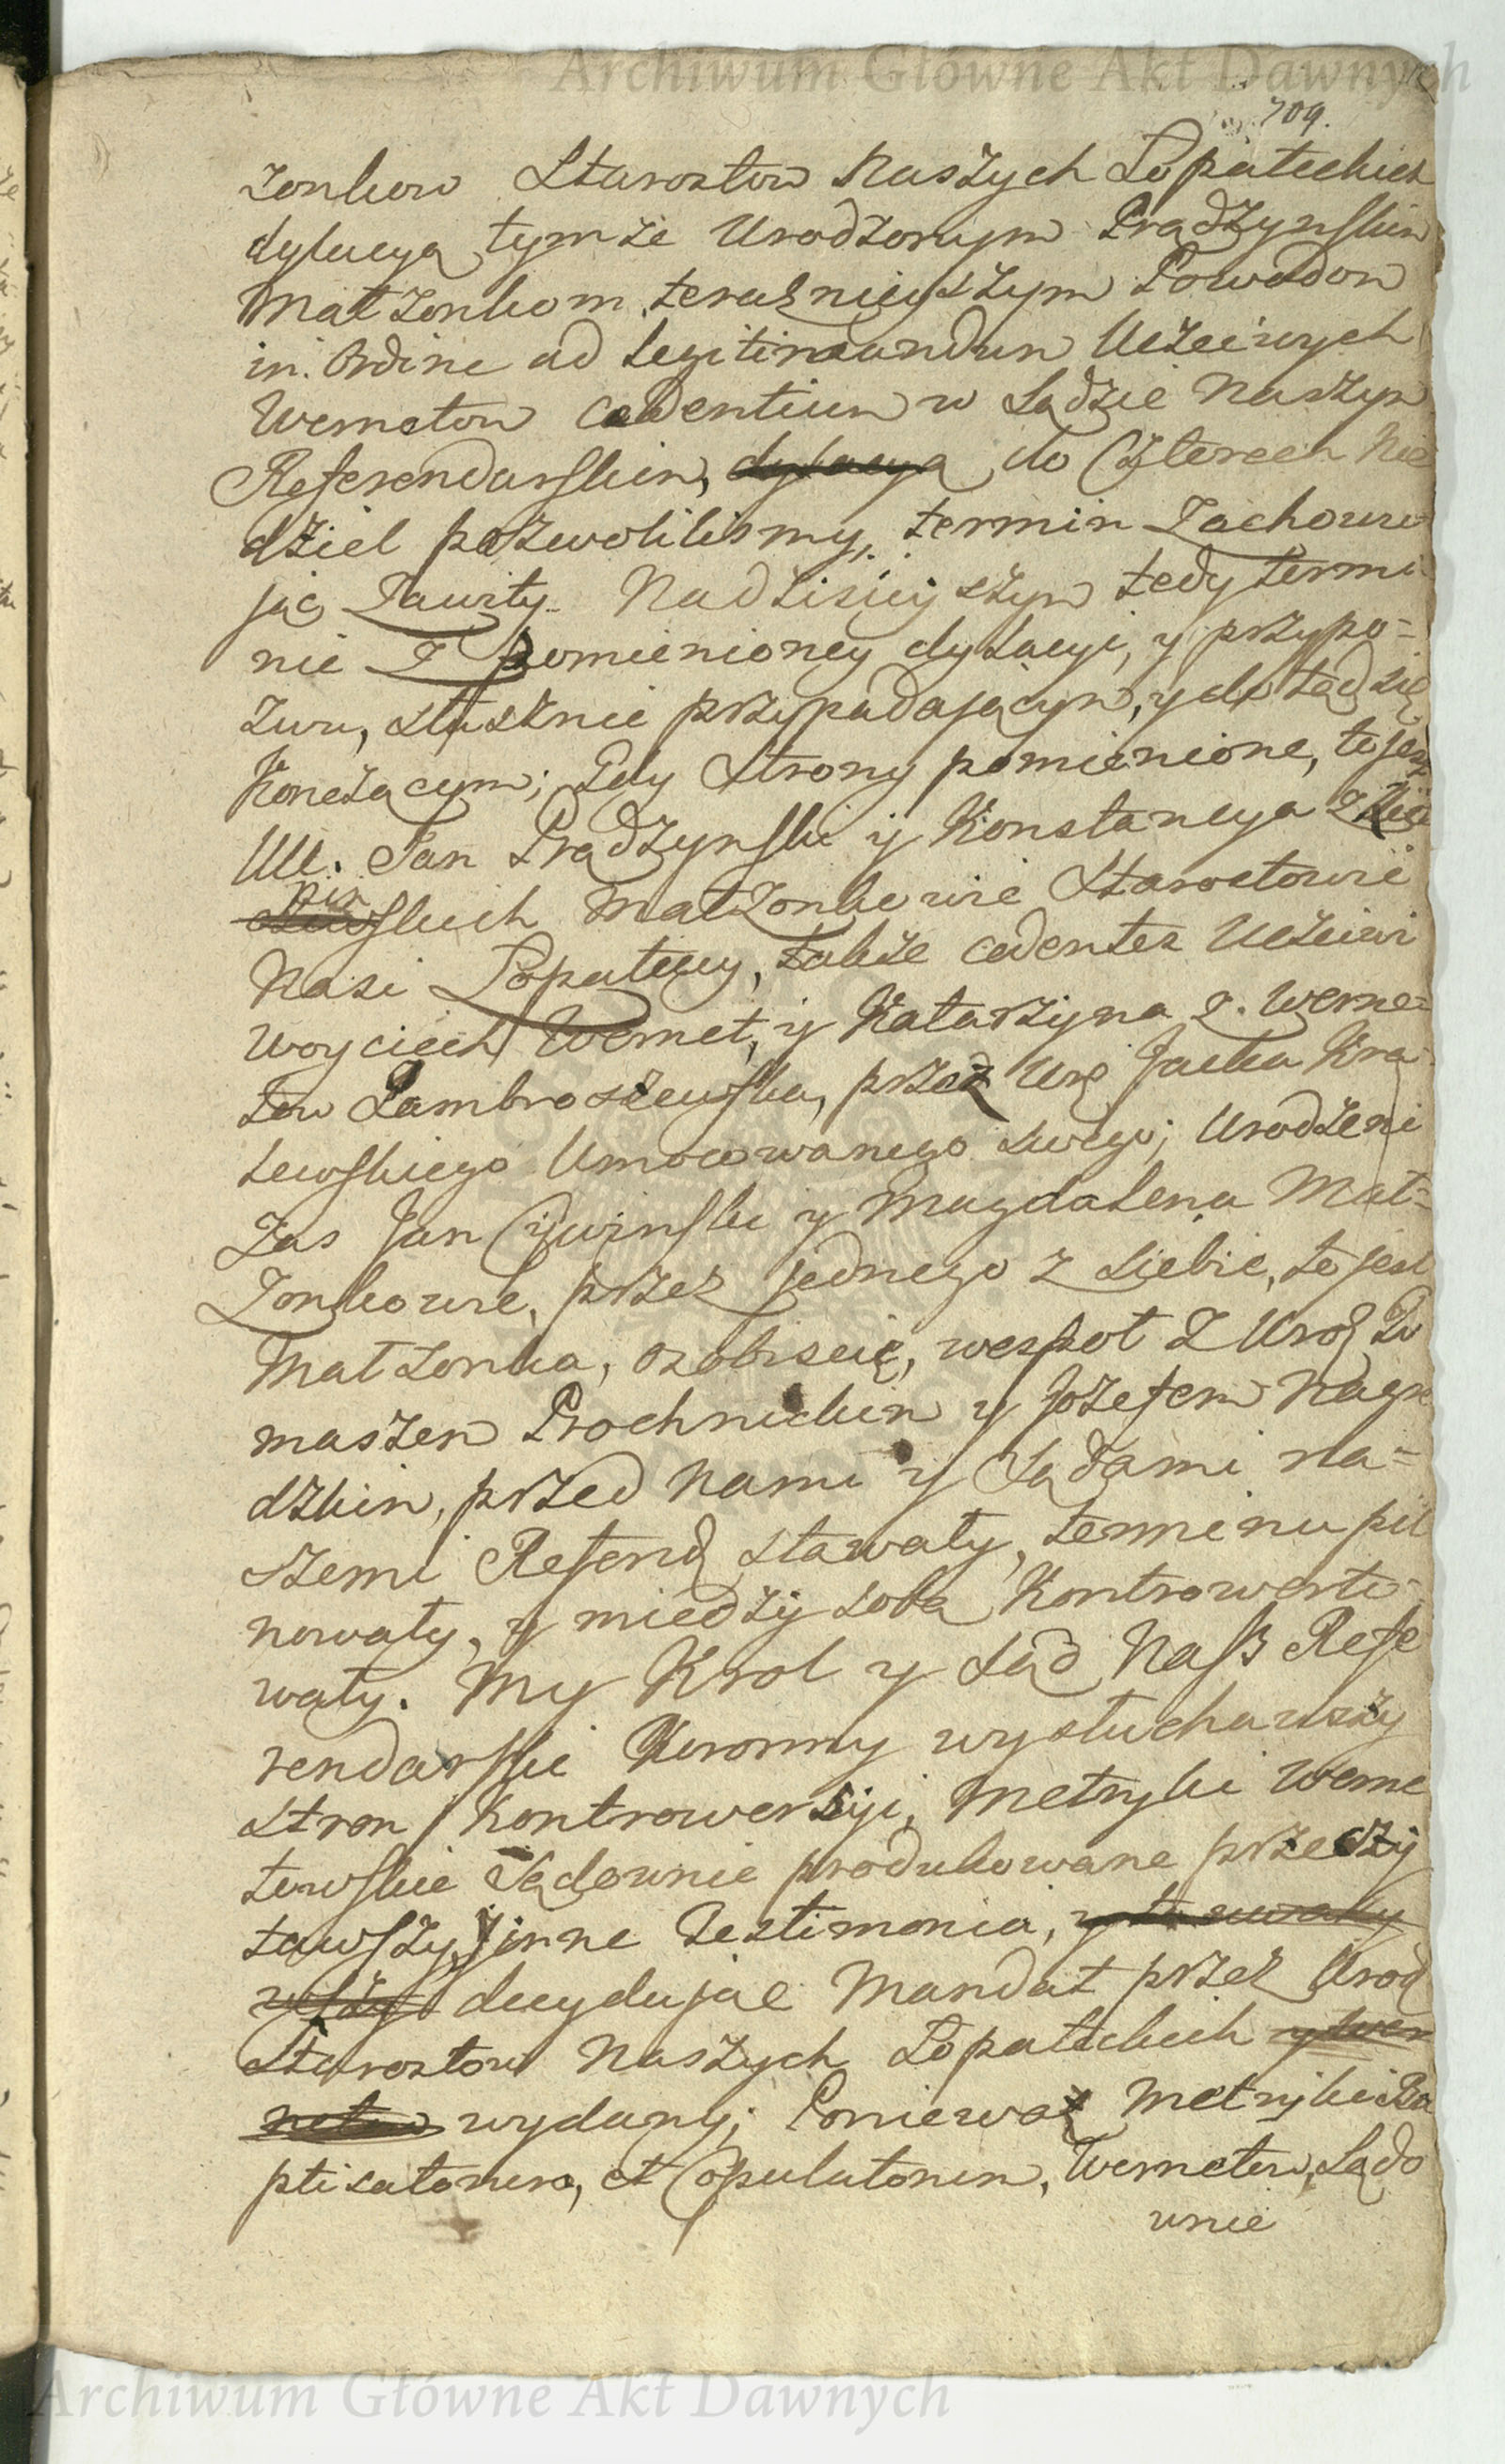 Archiwum Główne Akt Dawnych
709.
żonkow Starostow Naszych Łopateckich
dylacyą tymże Urodzonym Prądzynskim
Małżonkom teraznieyszym Powodom
in Ordine ad legitimandum Uczciwych
Wernetow cedentium w Sądzie Naszym
Referendarskim, dylacyą do Czterech Nie
dziel pozwolilismy, termin Zachowu
jąc Zawity. Na dzisieyszym tedy termi
nie z pomienioney dylacyi, y przypo=
zwu, słusznie przypadaiącym, y do tąd się
Kączącym; Gdy Strony pomienione, to jest
UU. Jan Prądzynski y Konstancya z
skich Małżonkowie Starostowie
Nasi Łopateccy, także cedentes Uczciwi
Woyciech Wernet, y Katarzyna z. Werne=
tow Zambroszewska, przez Ur. Jacka Kra
sewskiego Umocowanego swego; Urodzeni
Zas Jan Cywinski y Magdalena Mał=
Zonkowie, przez jednego z Siebie, to jest
Małżonka, osobiscie, wespoł z Urod. To
maszem Prochnickim y Jozefem Nagro
dzkim, przed Nami y Sądami na=
szemi Referend. stawały, terminu pil
nowały, y między sobą Kontrowerto=
wały. My Krol y Sąd Nasz Refe
rendarski Koronny wysłuchawszy
Stron Kontrowersyi, Metryki Werne
towskie Sądownie produkowane przeczy
tawszy, y inne Testimonia, y to uwazy
wszy decydując Mandat przez Urod.
Starostow Naszych Łopateckich y Wer
netow wydany; Ponieważ Metryki Ba
ptisatorum, et Copulatorum, Wernetow, Sądo
wnie
Archiwum Główne Akt Dawnych